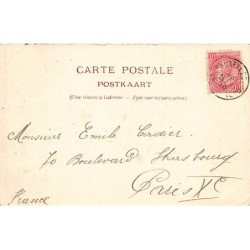 CARTE POSTALE
POSTKAART
(Côté réservé à l'adresse. — Zijde voor het adres alleen.)
Monsieur Emile Cordier
70 Boulevard Strasbourg
Paris Xe
France